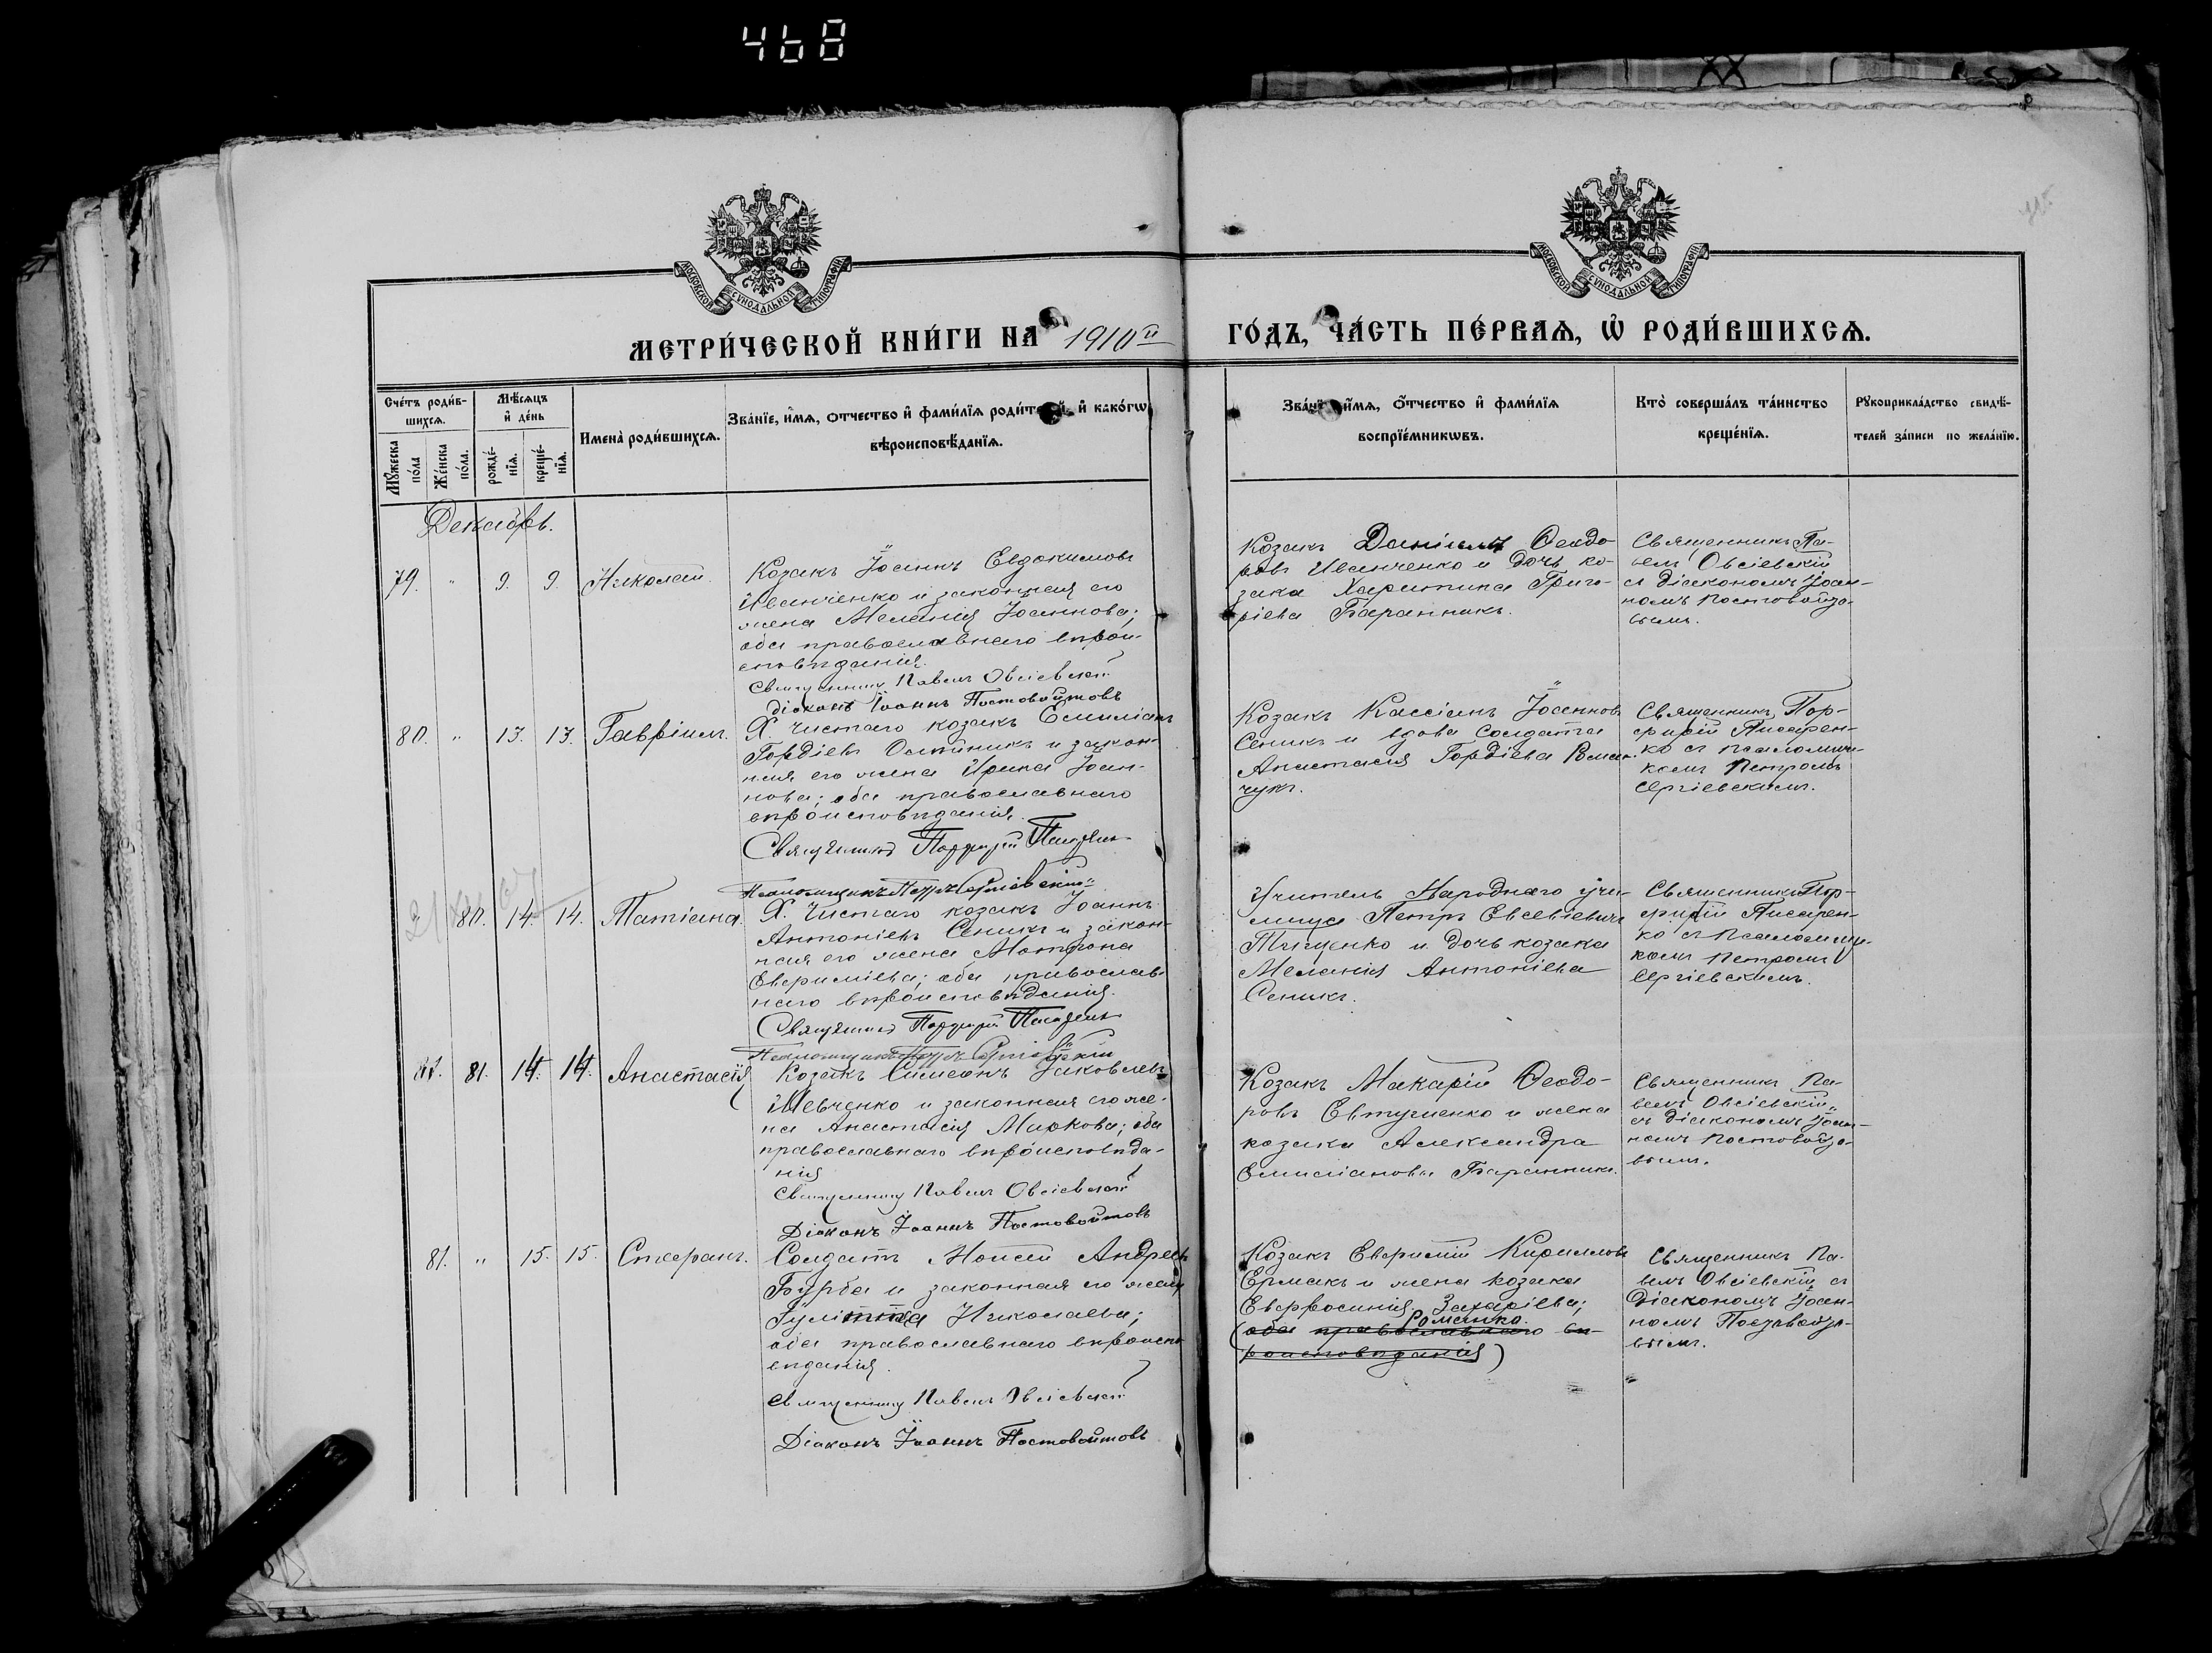 468
115
МОСКОВСКОЙ СУНОДАЛЬНОЙ ТИПОГРАФІИ
МОСКОВСКОЙ СУНОДАЛЬНОЙ ТИПОГРАФІИ
МЕТРИ́ЧЕСКОЙ КНИ́ГИ НА 1910й
ГО́ДЪ, ЧА́СТЬ ПЕ́РВАѦ, Ѡ҆ РОДИ́ВШИХСѦ.
Сче́тъ роди́в-
шихсѧ.
Мꙋ́жеска по́ла
Же́нска по́ла.
Мѣ́сѧцъ
и҆ де́нь
рожде́-
нїѧ.
креще́-
нїѧ.
Имена̀ роди́вшихсѧ.
Зва́нїе, и҆́мѧ, ѻ҆́тчество и҆ фами́лїѧ роди́телей, и҆ како́гѡ
вѣроисповѣ́данїѧ.
Зва́нїе, и҆́мѧ, ѻ҆́тчество и҆ фами́лїѧ
воспрїе́мникѡвъ.
Кто̀ соверша́лъ та́инство
креще́нїѧ.
Рꙋкоприкла́дство свидѣ́-
телей за́писи по жела́нїю.
Декабрь.
79. " 9. 9. Николай.
Козакъ Іоаннъ Евдокимовъ
Иванченко и законная его
жена Меланія Іоаннова;
оба православнаго вѣрои-
сповѣданія.
Священникъ Павелъ Овсіевскій
Діаконъ Іоаннъ Постовойтовъ
Козакъ Даніилъ Ѳеодо-
ровъ Иванченко и дочь ко-
зака Харитина Григо-
ріева Баранникъ.
Священникъ Па-
велъ Овсіевскій
съ діакономъ Іоан-
номъ Постовойто-
вымъ.
80. " 13. 13. Гавріилъ.
Х. Чистаго козакъ Емиліанъ
Гордіевъ Олійникъ и закон-
ная его жена Ирина Іоан-
нова; оба православнаго
вѣроисповѣданія.
Священникъ Порфирій Писаренко
Псаломщикъ Петръ Сергіевскій
Козакъ Кассіанъ Іоанновъ
Сеникъ и вдова солдата
Анастасія Гордіева Роман-
чукъ.
Священникъ Пор-
фирій Писарен-
ко съ псаломщи-
комъ Петромъ
Сергіевскимъ.
80. 14. 14. Татіана.
Х. Чистаго козакъ Іоаннъ
Антоніевъ Сеникъ и закон-
ная его жена Матрона
Евфиміева; оба православ-
наго вѣроисповѣданія.
Священникъ Порфирій Писаренко
Псаломщикъ Петръ Сергіевскій
Учитель Народнаго учи-
лища Петръ Евсевіевичъ
Тищенко и дочь козака
Меланія Антоніева
Сеникъ.
Священникъ Пор-
фирій Писарен-
ко съ псаломщи-
комъ Петромъ
Сергіевскимъ.
81. 14. 14. Анастасія
Козакъ Симеонъ Іаковлевъ
Шевченко и законная его же-
на Анастасія Маркова; оба
православнаго вѣроисповѣда-
нія
Священникъ Павелъ Овсіевскій
Діаконъ Іоаннъ Постовойтовъ
Козакъ Макарій Ѳеодо-
ровъ Евтушенко и жена
козака Александра
Емиліанова Баранникъ.
Священникъ Па-
велъ Овсіевскій
съ діакономъ Іоан-
номъ Постовойто-
вымъ.
81. " 15. 15. Стефанъ.
Солдатъ Моисей Андреевъ
Бурба и законная его жена
Іулитта Николаева;
оба православнаго вѣроиспо-
вѣданія.
Священникъ Павелъ Овсіевскій
Діаконъ Іоаннъ Постовойтовъ
Козакъ Евфимій Кирилловъ
Ермакъ и жена козака
Евфросинія Захаріева;
Романко.
(оба православнаго вѣ-
роисповѣданія)
Священникъ Па-
велъ Овсіевскій съ
Діакономъ Іоан-
номъ Постовойто-
вымъ.